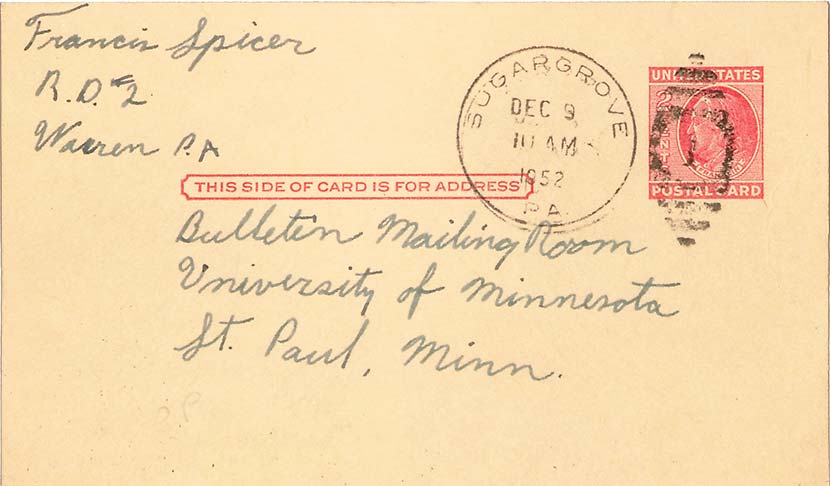 Francis Spicer
R.D.#2
Warren PA
SUGARGROVE
DEC 9
10 AM
1952
PA
UNITED STATES
2 CENTS
POSTAL CARD
THIS SIDE OF CARD IS FOR ADDRESS
Bulletin Mailing Room
University of Minnesota
St. Paul, Minn.